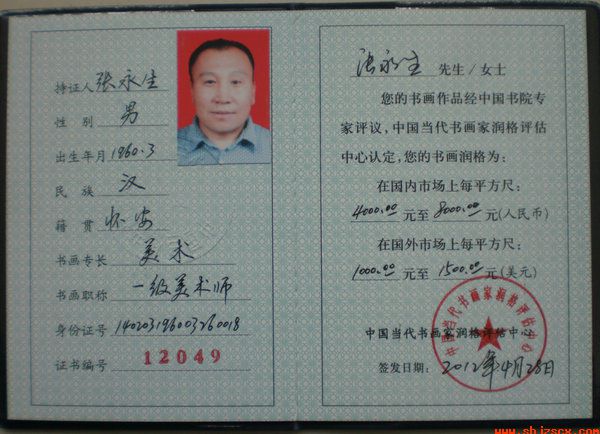 持证人 张永生
性 别 男
出生年月 1960.3
民 族 汉
籍 贯 怀安
书画专长 美术
书画职称 一级美术师
身份证号 140203196003260018
证书编号 12049
张永生 先生/女士
您的书画作品经中国书院专
家评议,中国当代书画家润格评估
中心认定,您的书画润格为:
在国内市场上每平方尺:
4000.00 元至 8000.00 元(人民币)
在国外市场上每平方尺:
1000.00 元至 1500.00 元(美元)
中国当代书画家润格评估中心
中国当代书画家润格评估中心
签发日期: 2012年4月28日
www.sbjzscx.com